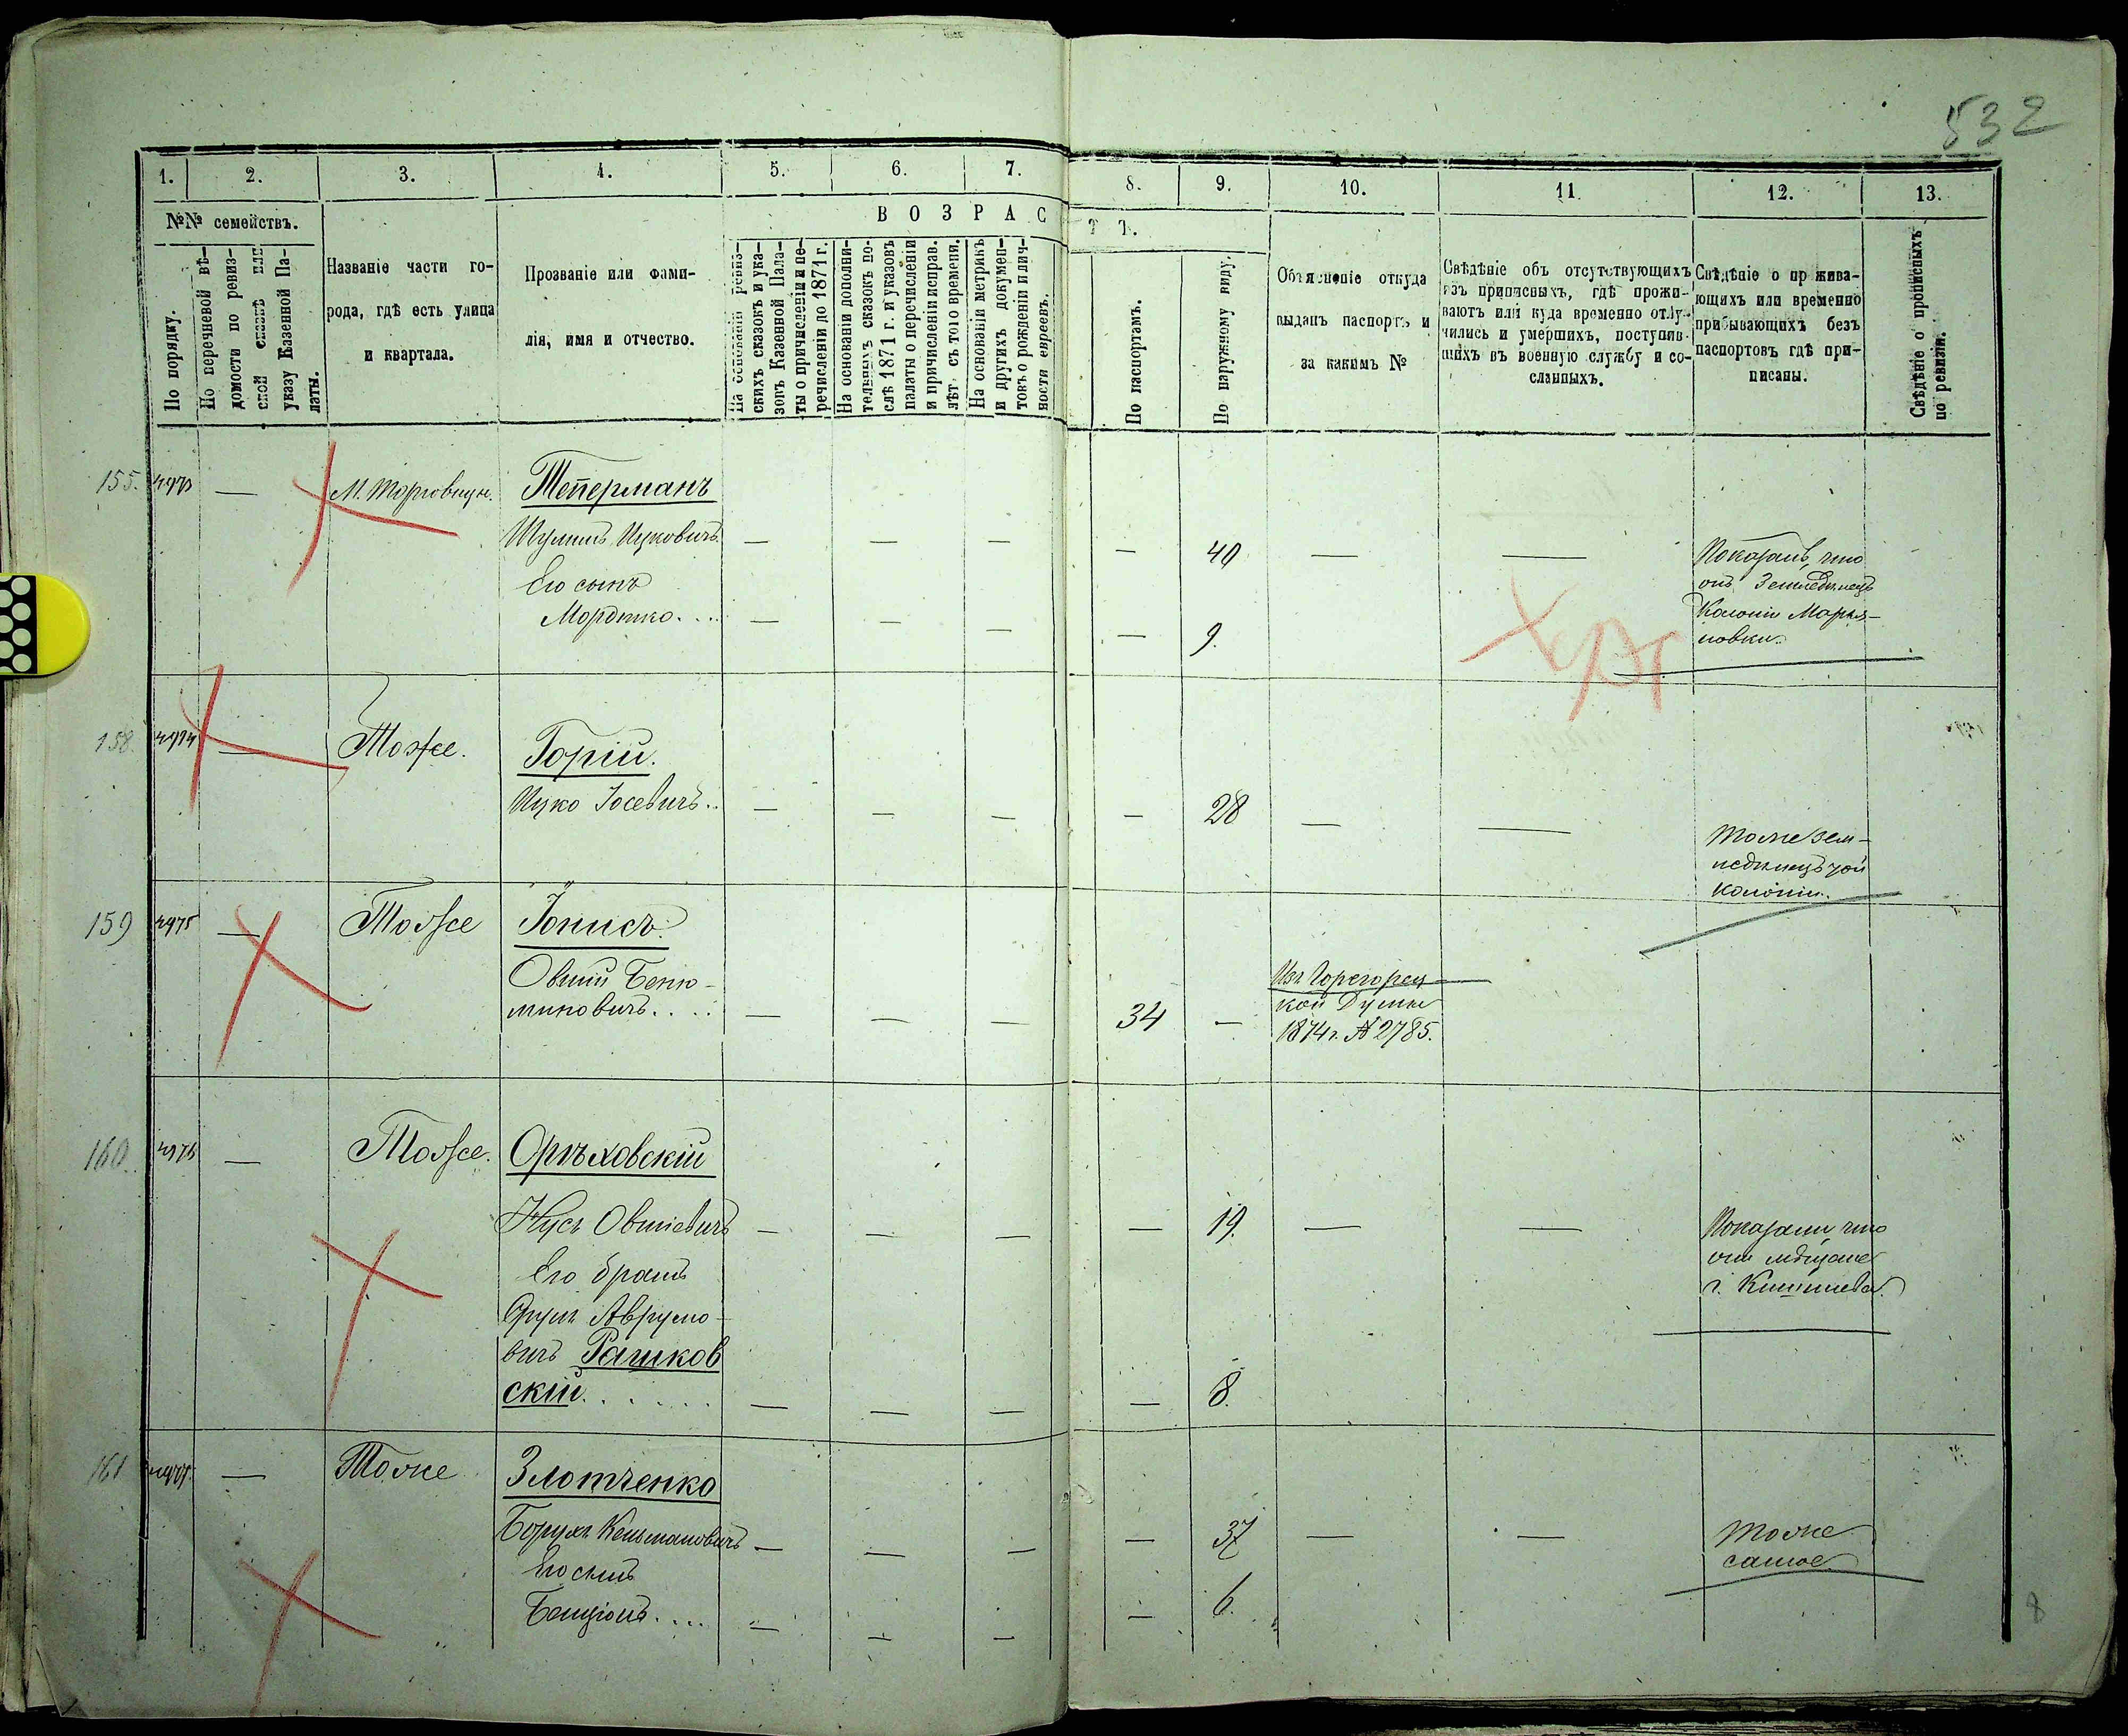 532
1.
2.
3.
4.
5.
6.
7.
8.
9.
10.
11
12.
13.
№№ семействъ.
По порядку.
По перечневой вѣ-
домости по ревиз-
ской сказкѣ или
указу Казенной Па-
латы.
Названіе части го-
рода, гдѣ есть улица
и квартала.
Прозваніе или фами-
лія, имя и отчество.
ВОЗРАС
Т Ъ.
На основаніи ревиз-
скихъ сказокъ и ука-
зовъ Казенной Пала-
ты о причисленіи и пе-
речисленіи до 1871 г.
На основаніи дополни-
тельныхъ сказокъ по-
слѣ 1871 г. и указовъ
палаты о перечисленіи
и причисленіи исправ.
лѣт. съ того времени.
На основаніи метрикъ
и другихъ докумен-
товъ о рожденіи и лич-
ности евреевъ.
По паспортамъ.
По наружному виду.
Объясненіе откуда
выданъ паспортъ и
за какимъ №
Свѣдѣніе объ отсутствующихъ
изъ приписныхъ, гдѣ прожи-
ваютъ или куда временно отлу-
чились и умершихъ, поступив-
шихъ въ военную службу и со-
сланныхъ.
Свѣдѣніе о прожива-
ющихъ или временно
прибывающихъ безъ
паспортовъ гдѣ при-
писаны.
Свѣдѣніе о прописныхъ
по ревизіи.
155. 4973 — Теперманъ
Шулимъ Ицковичъ — — — — 40 — — Показалъ, что
онъ Земледѣлецъ
Его сынъ
Колоніи Марья-
Мордко.... — — — — 9. новки.
158. 4974 — Тоже. Горій.
Ицко Іосевичъ.. — — — — 28 — — Тоже зем-
ледѣлецъ той
колоніи.
159 4975 — Тоже Іонисъ.
Овшій Беню-
миновичъ.... — — — 34 — Изъ Горегорец-
кой Думы
1874 г. № 2785.
—
160. 4976 — Тоже. Орѣховскій
Нусъ Овшіевичъ — — — — 19. — — Показали что
они мѣщане
г. Кишинева.
Его братъ
Аврумо-
вичъ Рашков
скій...... — — — — 8.
161 4977. — Тоже Злотченко
Борухъ Кельмановичъ — — — — 37 — — Тоже
самое
Его сынъ
Бенціонъ.... — — — — 6.
8